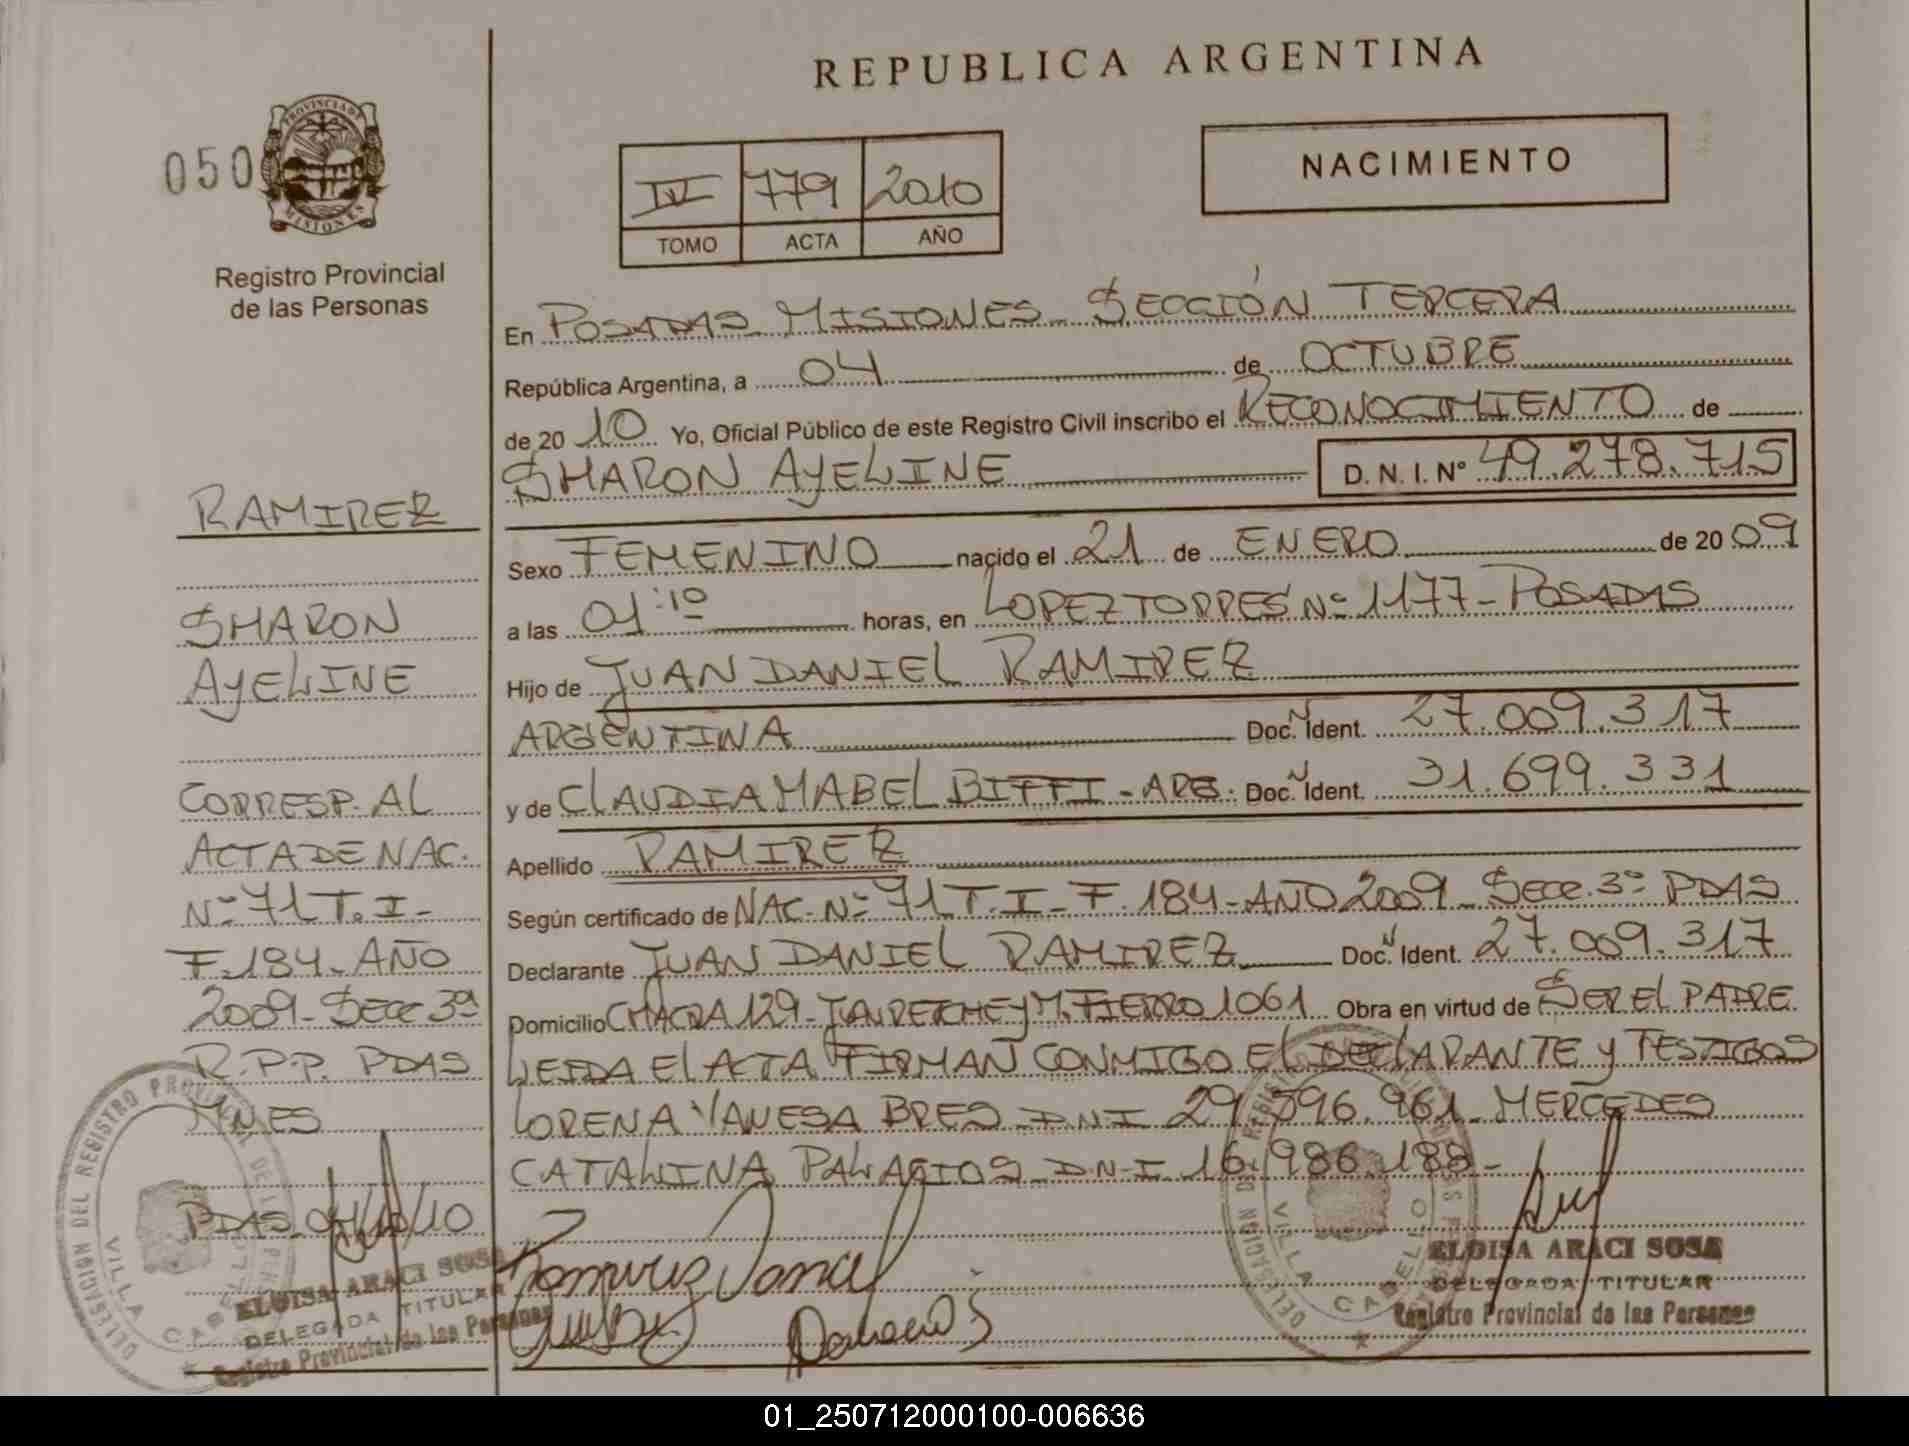 REPUBLICA ARGENTINA
050
PROVINCIA DE MISIONES
Registro Provincial
de las Personas
IV 779 2010
TOMO ACTA AÑO
NACIMIENTO
En POSADAS MISIONES SECCIÓN TERCERA
República Argentina, a 04 de OCTUBRE
de 20 10 Yo, Oficial Público de este Registro Civil inscribo el RECONOCIMIENTO de
SHARON AYELINE D.N.I. Nº 49.278.715
Sexo FEMENINO nacido el 21 de ENERO de 20 09
a las 01:10 horas, en LOPEZ TORRES Nº 1177 - POSADAS
Hijo de JUAN DANIEL RAMIREZ
ARGENTINA Doc. Ident. 27.009.317
y de CLAUDIA MABEL BIFFI - ARG. Doc. Ident. 31.699.331
Apellido RAMIREZ
Según certificado de NAC. Nº 71 T. I - F. 184 - AÑO 2009 - SECC. 3º PDAS
Declarante JUAN DANIEL RAMIREZ Doc. Ident. 27.009.317
Domicilio CHACRA 129 - Y M. FIERRO 1061 Obra en virtud de SER EL PADRE
LEIDA EL ACTA FIRMAN CONMIGO EL DECLARANTE Y TESTIGOS
LORENA VANESA BRES DNI 29.396.961 MERCEDES
CATALINA PALACIOS D.N.I. 16.986.188 -
Ramirez Daniel
ELOISA ARACI SOSA
DELEGADA TITULAR
Registro Provincial de las Personas
RAMIREZ
SHARON
AYELINE
CORRESP. AL
ACTA DE NAC.
Nº 71 T. I -
F. 184 - AÑO
2009 - SECC 3ª
R.P.P. PDAS
MNES
PDAS 04/10/10
ELOISA ARACI SOSA
DELEGADA TITULAR
Registro Provincial de las Personas
DELEGACION DEL REGISTRO PROVINCIAL DE LAS PERSONAS
VILLA CABELLO
DELEGACION DEL REGISTRO PROVINCIAL DE LAS PERSONAS
VILLA CABELLO
01_250712000100-006636